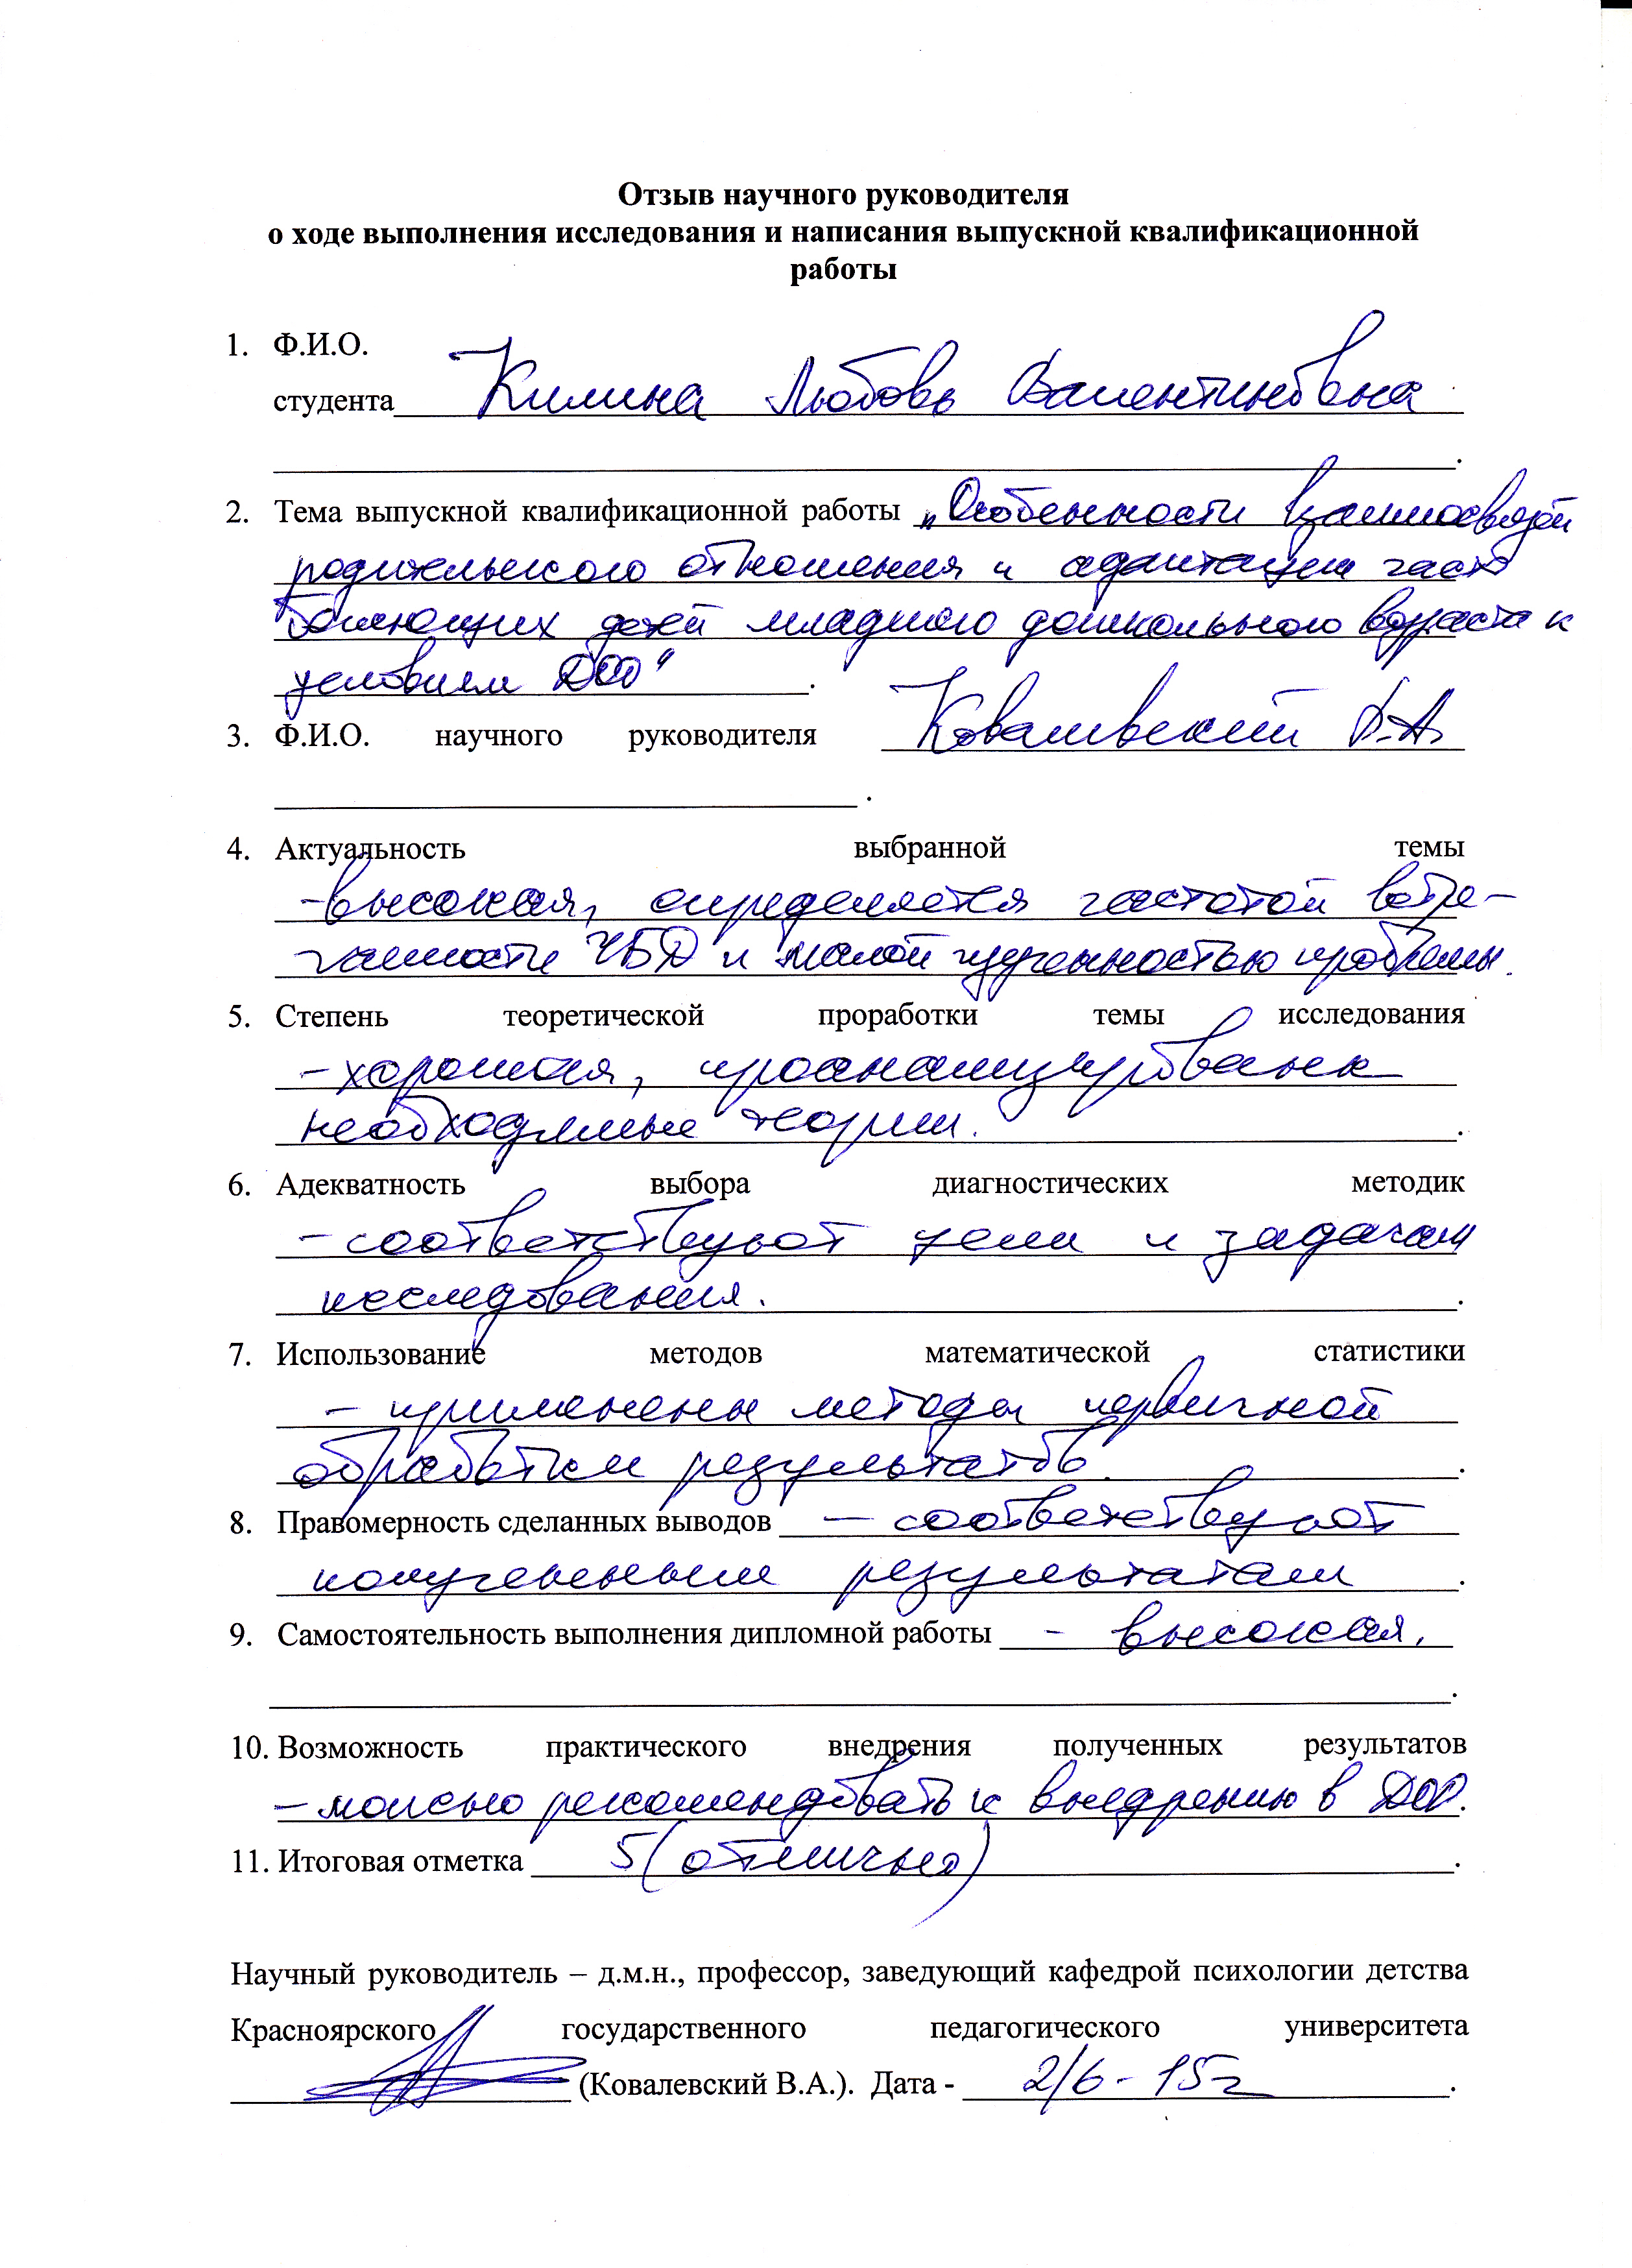 Отзыв научного руководителя
о ходе выполнения исследования и написания выпускной квалификационной
работы
1. Ф.И.О.
студента Килина Любовь Валентиновна
.
2. Тема выпускной квалификационной работы „Особенности взаимосвязей
родительского отношения и адаптации часто
болеющих детей младшего дошкольного возраста к
условиям ДОО" .
3. Ф.И.О. научного руководителя Ковалевский В.А.
.
4. Актуальность выбранной темы
- высокая, определяется частотой встре-
чаемости ЧБД и малой изученностью проблемы.
5. Степень теоретической проработки темы исследования
- хорошая, проанализированы
необходимые теории. .
6. Адекватность выбора диагностических методик
- соответствуют цели и задачам
исследования. .
7. Использование методов математической статистики
- применены методы первичной
обработки результатов. .
8. Правомерность сделанных выводов — соответствуют
полученным результатам .
9. Самостоятельность выполнения дипломной работы - высокая.
.
10. Возможность практического внедрения полученных результатов
- можно рекомендовать к внедрению в ДОО.
11. Итоговая отметка 5 (отлично) .
Научный руководитель – д.м.н., профессор, заведующий кафедрой психологии детства
Красноярского государственного педагогического университета
(Ковалевский В.А.). Дата - 2/6-15г .